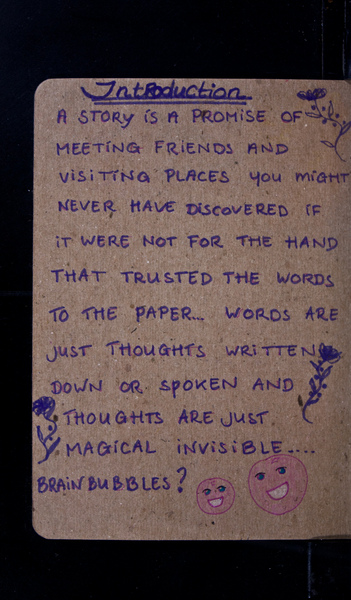 Introduction
A STORY iS A PROMISE OF
MEETING FRIENDS AND
VISITING PLACES YOU MIGHT
NEVER HAVE DISCOVERED IF
iT WERE NOT FOR THE HAND
THAT TRUSTED THE WORDS
TO THE PAPER... WORDS ARE
JUST THOUGHTS WRITTEN
DOWN OR SPOKEN AND
THOUGHTS ARE JUST
MAGICAL INVISIBLE....
BRAINBUBBLES?